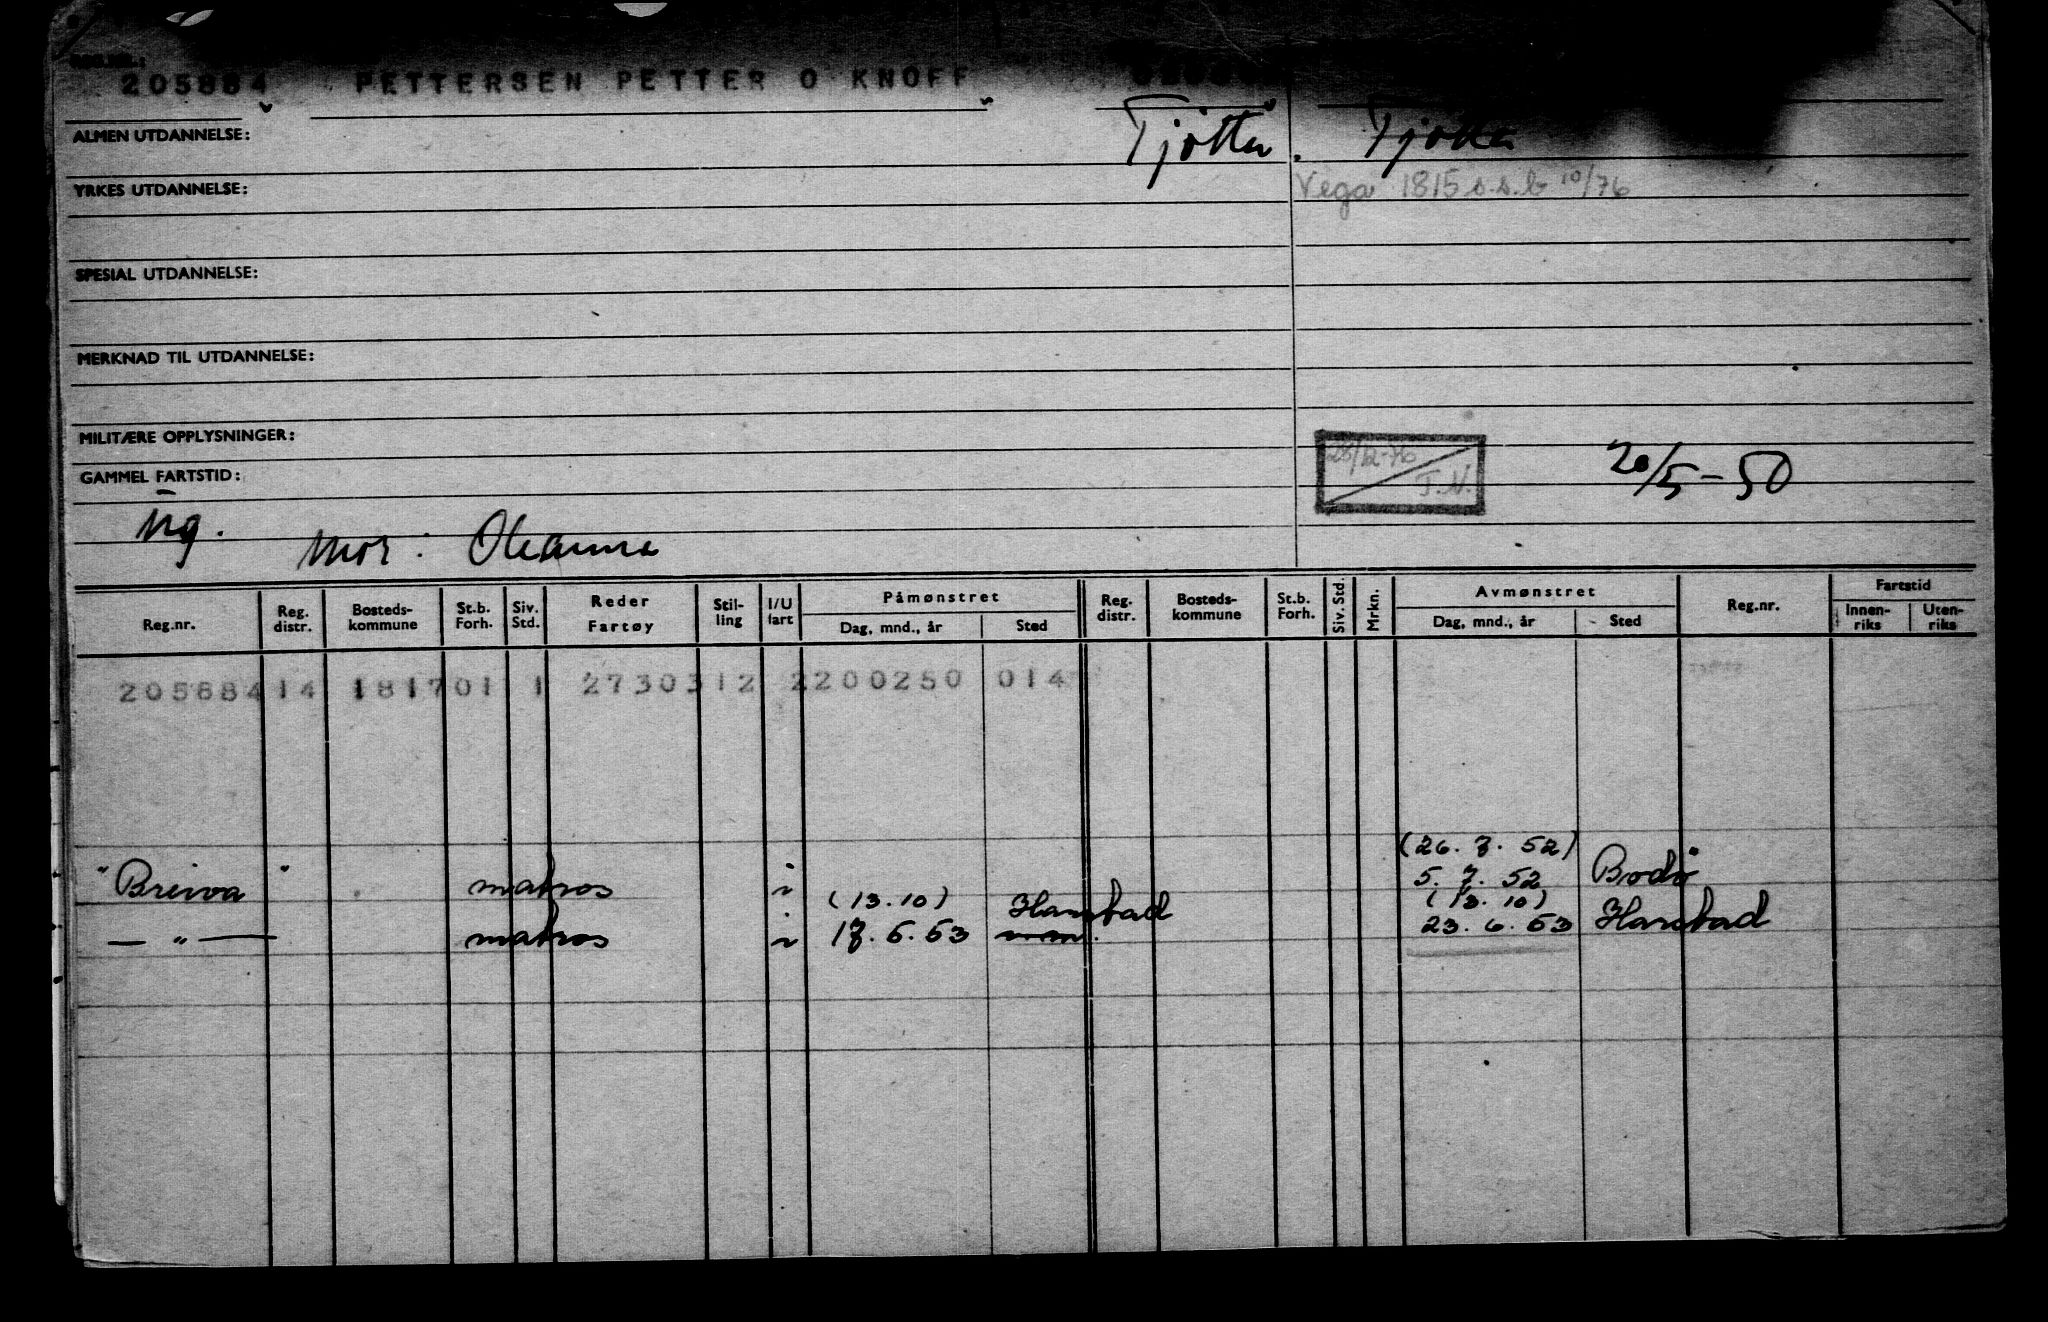 205884 PETTERSEN PETTER O KNOFF
ALMEN UTDANNELSE: Tjøtta. Tjøtta
YRKES UTDANNELSE: Vega 1815 s.s.b 10/76
SPESIAL UTDANNELSE:
MERKNAD TIL UTDANNELSE:
MILITÆRE OPPLYSNINGER:
28/12-76 J.N. 20/5-50
GAMMEL FARTSTID:
Ng. Mor: Oleanna
Reg.nr. Reg. distr. Bosteds-kommune St.b. Forh. Siv. Std. Reder Fartøy Stil-ling I/U fart Påmønstret Dag, mnd., år Sted Reg. distr. Bosteds-kommune St.b. Forh. Siv. Std. Mrkn. Avmønstret Dag, mnd., år Sted Reg.nr. Fartstid Innen-riks Uten-riks
205884 14 1817 01 1 27303 12 2 200250 014
(26. 7. 52)
"Breiva" matros i 5. 7. 52 Bodø
(13.10) Harstad (13.10)
— " — matros i 17. 6. 53 23. 6. 53 Harstad